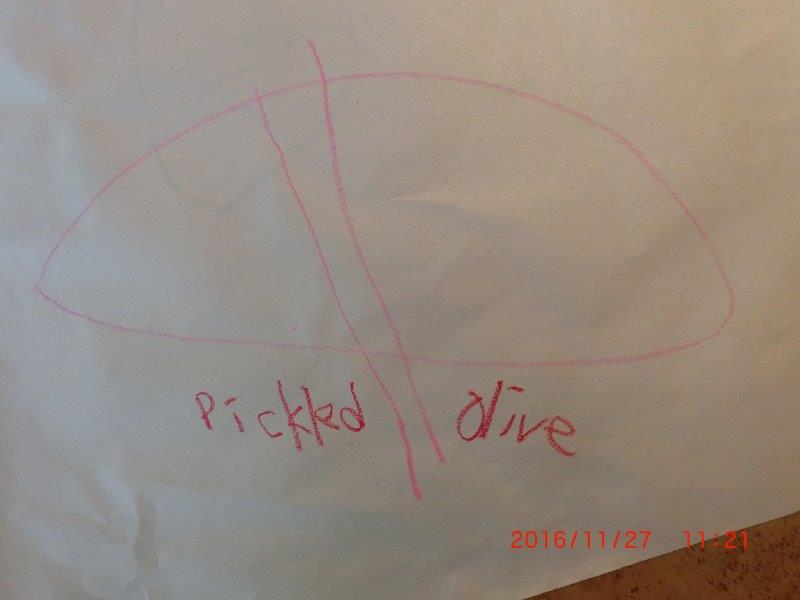 Pickled Olive
2016/11/27 11:21